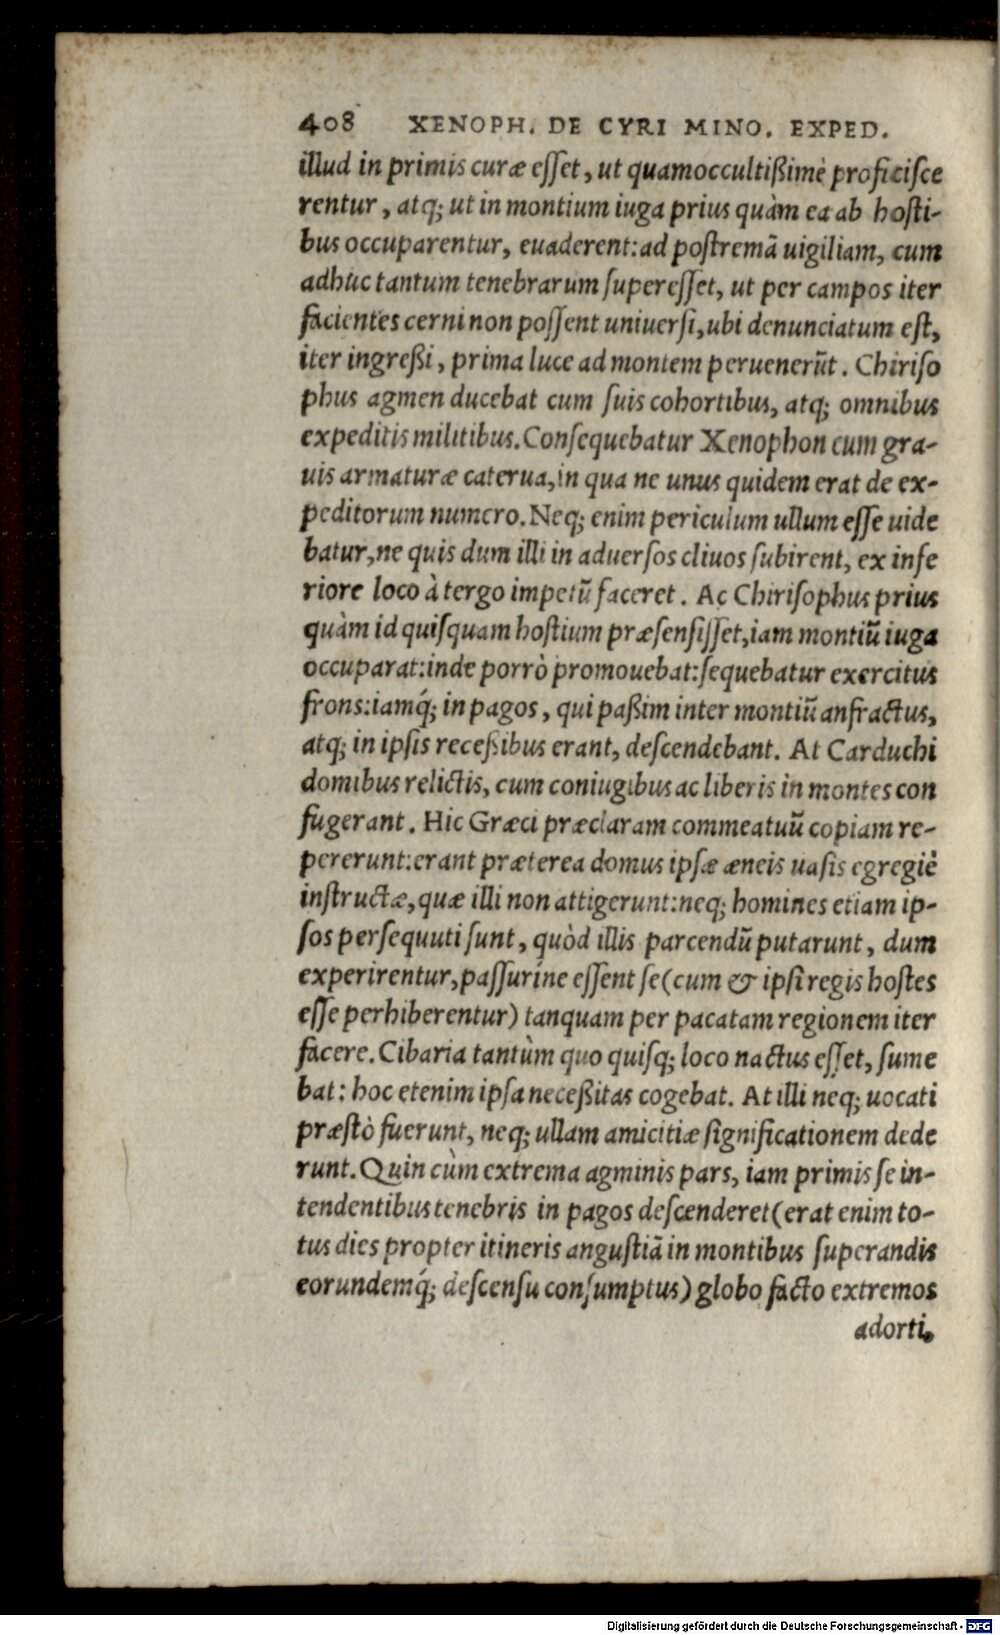 408 XENOPH. DE CYRI MINO. EXPED.
illud in primis curæ eſſet, ut quamoccultißimè proficiſce
rentur, atq; ut in montium iuga prius quàm ea ab hoſti-
bus occuparentur, euaderent: ad poſtremā uigiliam, cum
adhuc tantum tenebrarum ſupereſſet, ut per campos iter
facientes cerni non poſſent uniuerſi, ubi denunciatum eſt,
iter ingreßi, prima luce ad montem peruenerūt. Chiriſo
phus agmen ducebat cum ſuis cohortibus, atq; omnibus
expeditis militibus. Conſequebatur Xenophon cum gra-
uis armaturæ caterua, in qua ne unus quidem erat de ex-
peditorum numero. Neq; enim periculum ullum eſſe uide
batur, ne quis dum illi in aduerſos cliuos ſubirent, ex infe
riore loco à tergo impetū faceret. Ac Chiriſophus prius
quàm id quiſquam hoſtium præſenſiſſet, iam montiū iuga
occuparat: inde porrò promouebat: ſequebatur exercitus
frons: iamq́; in pagos, qui paßim inter montiū anfractus,
atq; in ipſis receßibus erant, deſcendebant. At Carduchi
domibus relictis, cum coniugibus ac liberis in montes con
fugerant. Hic Græci præclaram commeatuū copiam re-
pererunt: erant præterea domus ipſæ æneis uaſis egregiè
inſtructæ, quæ illi non attigerunt: neq; homines etiam ip-
ſos perſequuti ſunt, quòd illis parcendū putarunt, dum
experirentur, paſſuríne eſſent ſe (cum & ipſi regis hoſtes
eſſe perhiberentur) tanquam per pacatam regionem iter
facere. Cibaria tantùm quo quiſq; loco nactus eſſet, ſume
bat: hoc etenim ipſa neceßitas cogebat. At illi neq; uocati
præſtò fuerunt, neq; ullam amicitiæ ſignificationem dede
runt. Quin cùm extrema agminis pars, iam primis ſe in-
tendentibus tenebris in pagos deſcenderet (erat enim to-
tus dies propter itineris anguſtiā in montibus ſuperandis
eorundemq́; deſcenſu conſumptus) globo facto extremos
adorti.
Digitalisierung gefördert durch die Deutsche Forschungsgemeinschaft - DFG